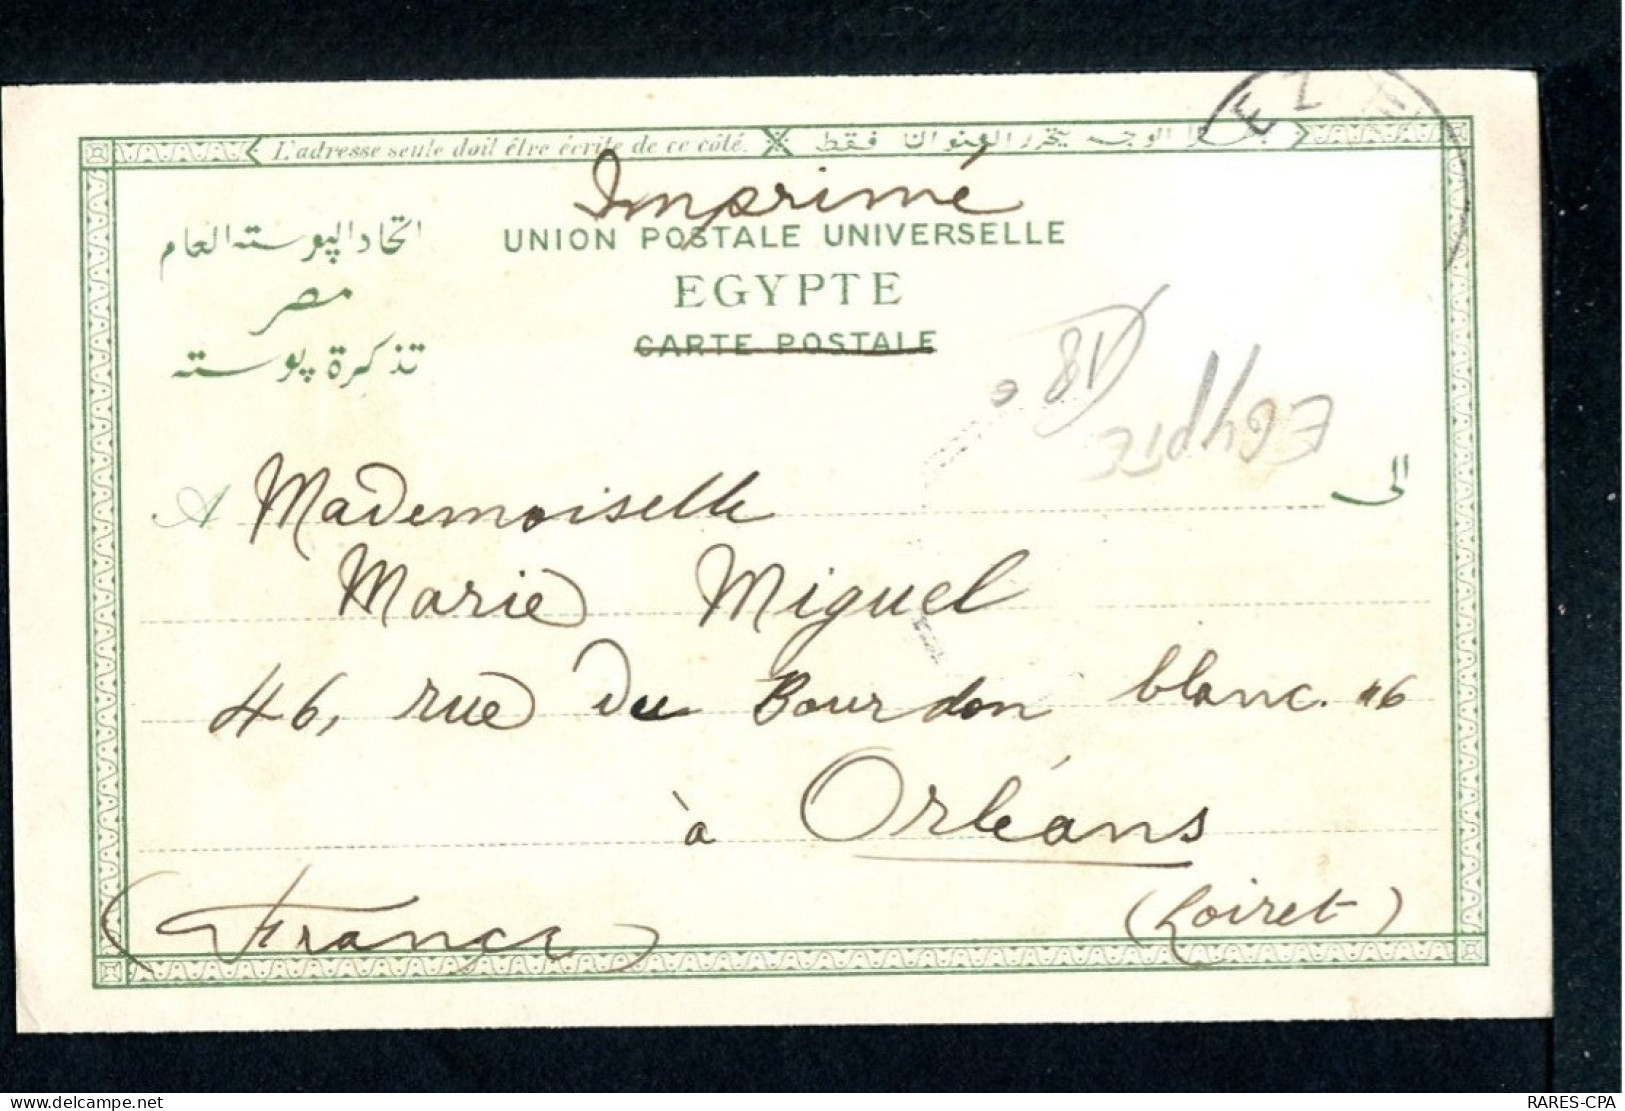 E Z
L'adresse seule doit être écrite de ce côté.
الوجه يتحرر العنوان فقط
Imprimé
UNION POSTALE UNIVERSELLE
EGYPTE
CARTE POSTALE
اتحاد البوسته العام
مصر
تذكرة بوسته
18
Egypte
الى
A Mademoiselle
Marie Miguel
46, rue du Bourdon blanc. 46
à Orléans
(Loiret)
(France)
RARES-CPA